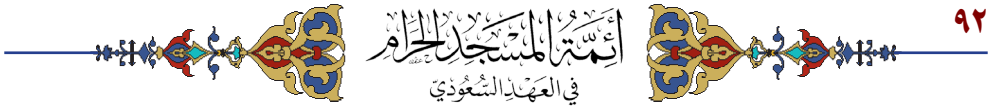 ٩٢
أَئِمَّةُ المَسْجِدِ الحَرَامِ
في العَهْدِ السُّعُودِيّ